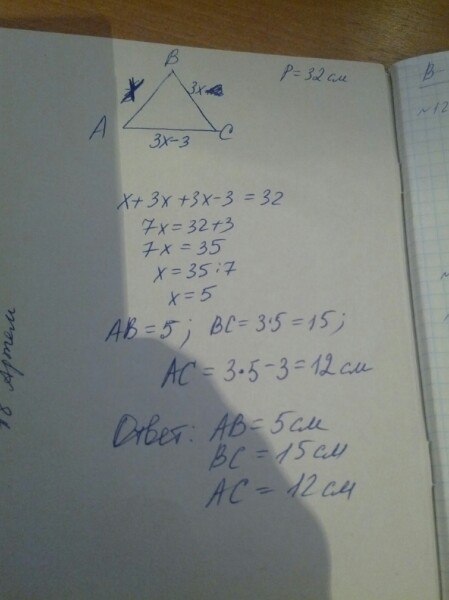 B
P = 32 см
x
3x
A
C
3x-3
x+3x+3x-3 = 32
7x = 32+3
7x = 35
x = 35:7
x = 5
AB = 5; BC = 3·5 = 15;
AC = 3·5-3 = 12 см
Ответ: AB = 5 см
BC = 15 см
AC = 12 см
Артем
B-
№12